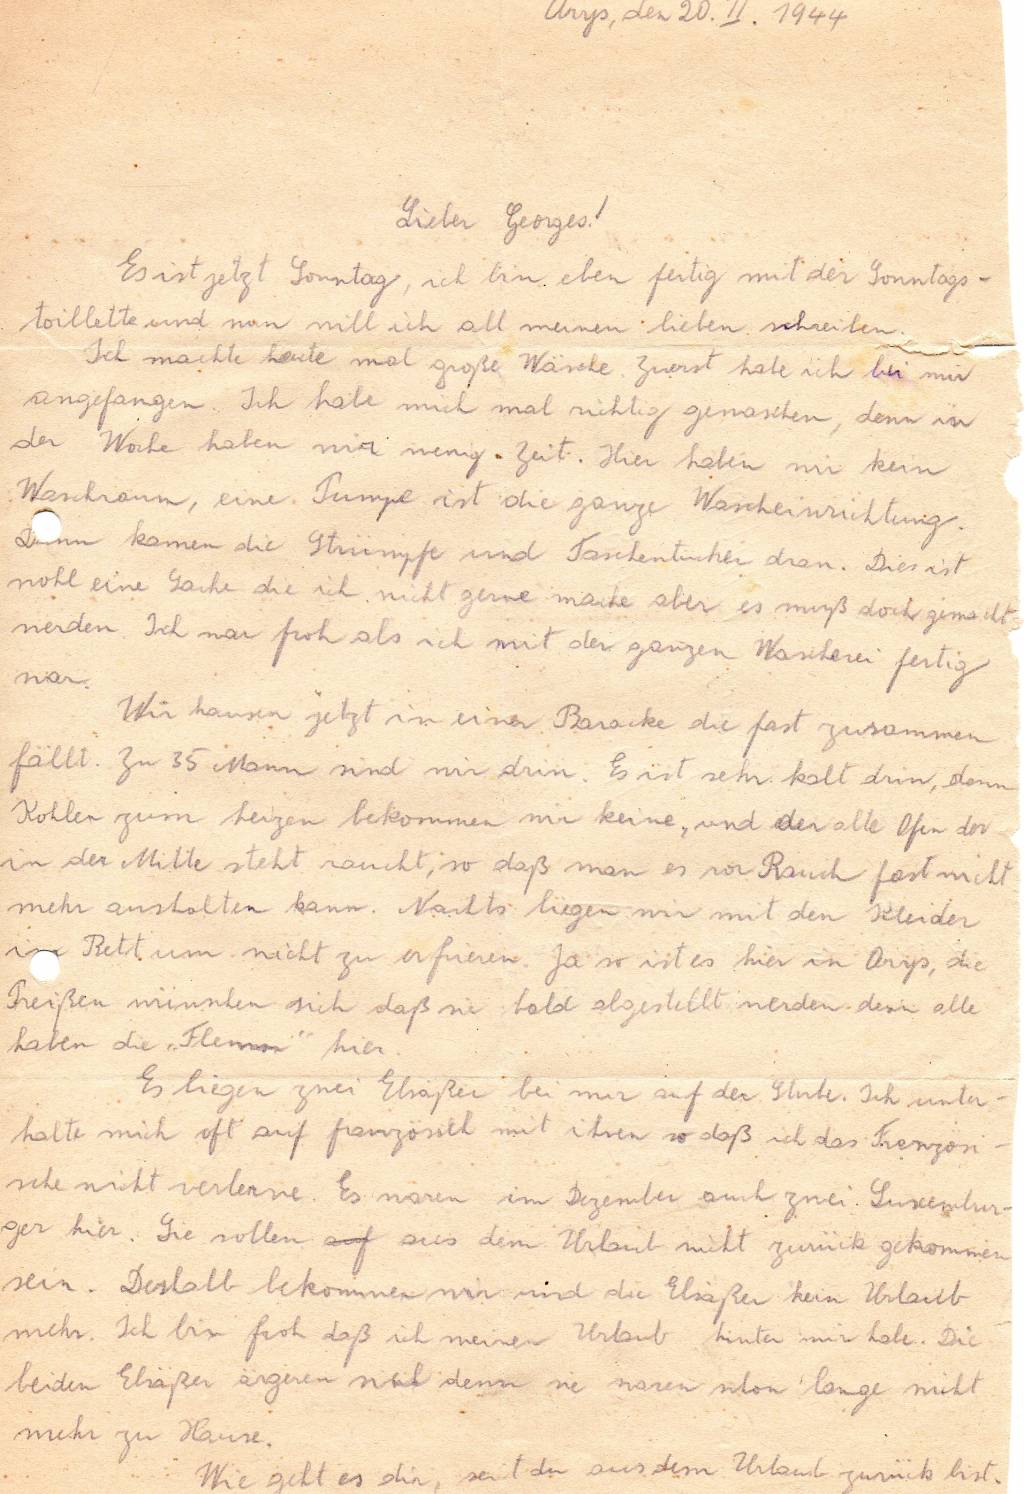 Arys, den 20. II. 1944
Lieber Georges!
Es ist jetzt Sonntag, ich bin eben fertig mit der Sonntags-
toillette und nun will ich all meinen lieben schreiben.
Ich machte heute mal große Wäsche. Zuerst habe ich bei mir
angefangen. Ich habe mich mal richtig gewaschen, denn in
der Woche haben wir wenig Zeit. Hier haben wir kein
Waschraum, eine Pumpe ist die ganze Wascheinrichtung.
Dann kamen die Strümpfe und Taschentücher dran. Dies ist
wohl eine Sache die ich nicht gerne mache aber es muß doch gemacht
werden. Ich war froh als ich mit der ganzen Wascherei fertig
war.
Wir hausen jetzt in einer Baracke die fast zusammen
fällt. Zu 35 Mann sind wir drin. Es ist sehr kalt drin, denn
Kohlen zum heizen bekommen wir keine, und der alte Ofen der
in der Mitte steht raucht, so daß man es vor Rauch fast nicht
mehr aushalten kann. Nachts liegen wir mit den Kleider
im Bett um nicht zu erfrieren. Ja so ist es hier in Arys, die
Preißen wünschen sich daß sie bald abgestellt werden denn alle
haben die „Flemm" hier.
Es liegen zwei Elsäßer bei mir auf der Stube. Ich unter-
halte mich oft auf französisch mit ihnen so daß ich das Französi-
sche nicht verlerne. Es waren im Dezember auch zwei Luxembur-
ger hier. Sie sollen auf aus dem Urlaub nicht zurück gekommen
sein. Deshalb bekommen wir und die Elsäßer kein Urlaub
mehr. Ich bin froh daß ich meinen Urlaub hinter mir habe. Die
beiden Elsäßer ärgeren sich denn sie waren schon lange nicht
mehr zu Hause.
Wie geht es dir, seit du aus dem Urlaub zurück bist.